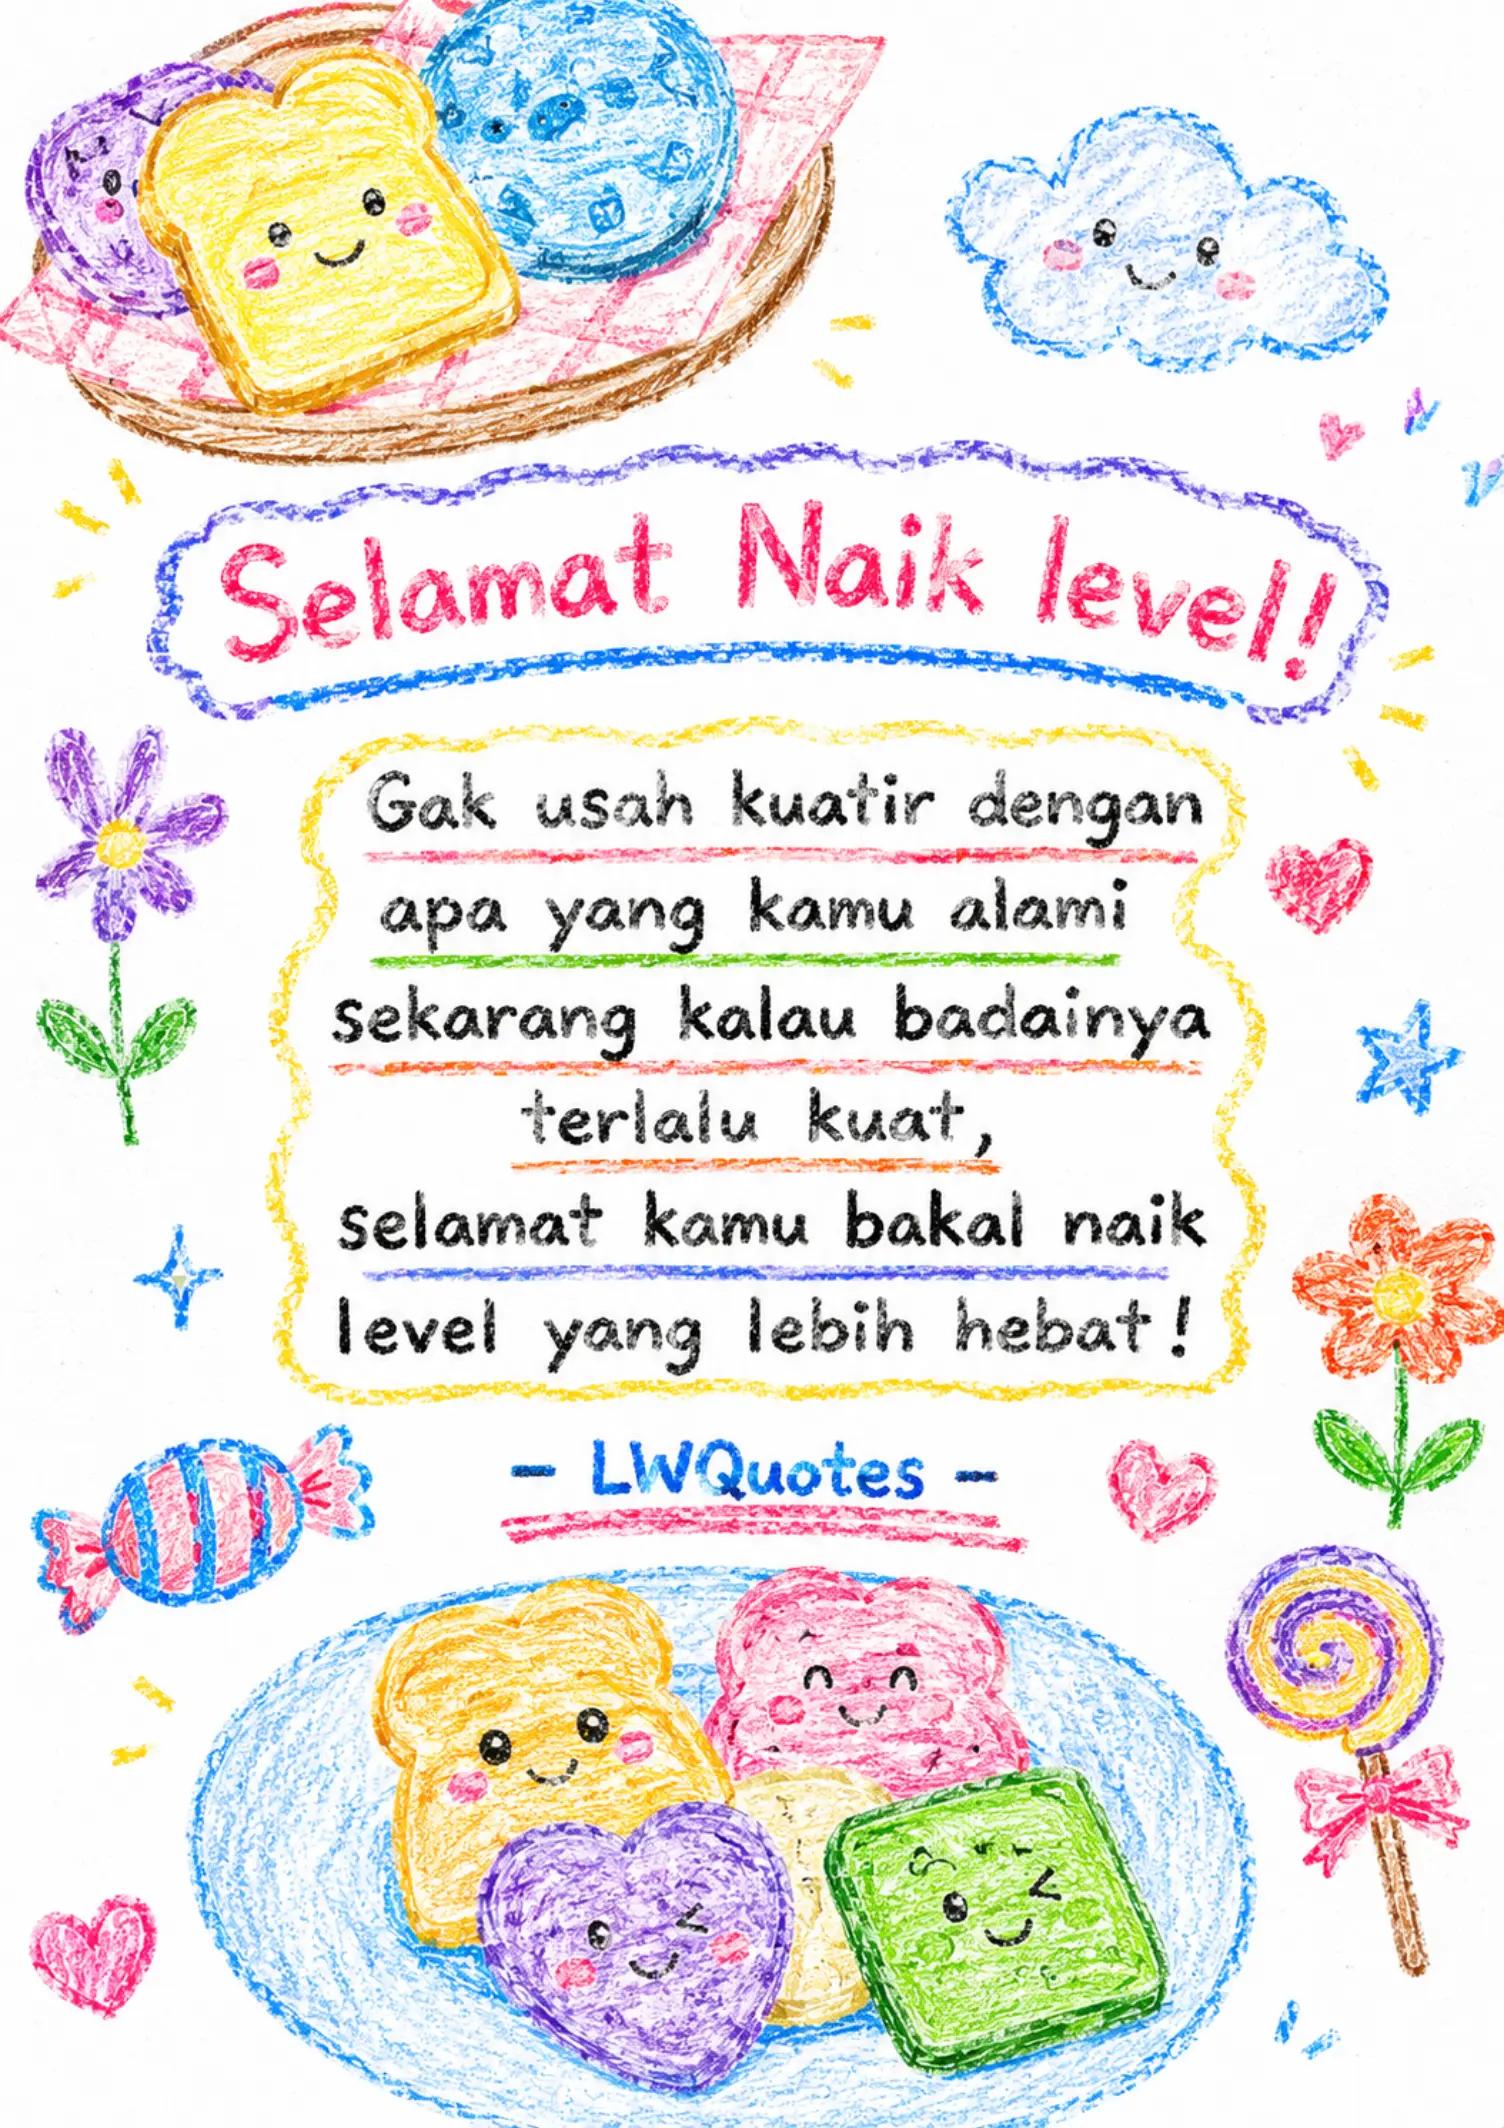 Selamat Naik level!
Gak usah kuatir dengan
apa yang kamu alami
sekarang kalau badainya
terlalu kuat,
selamat kamu bakal naik
level yang lebih hebat!
- LWQuotes -